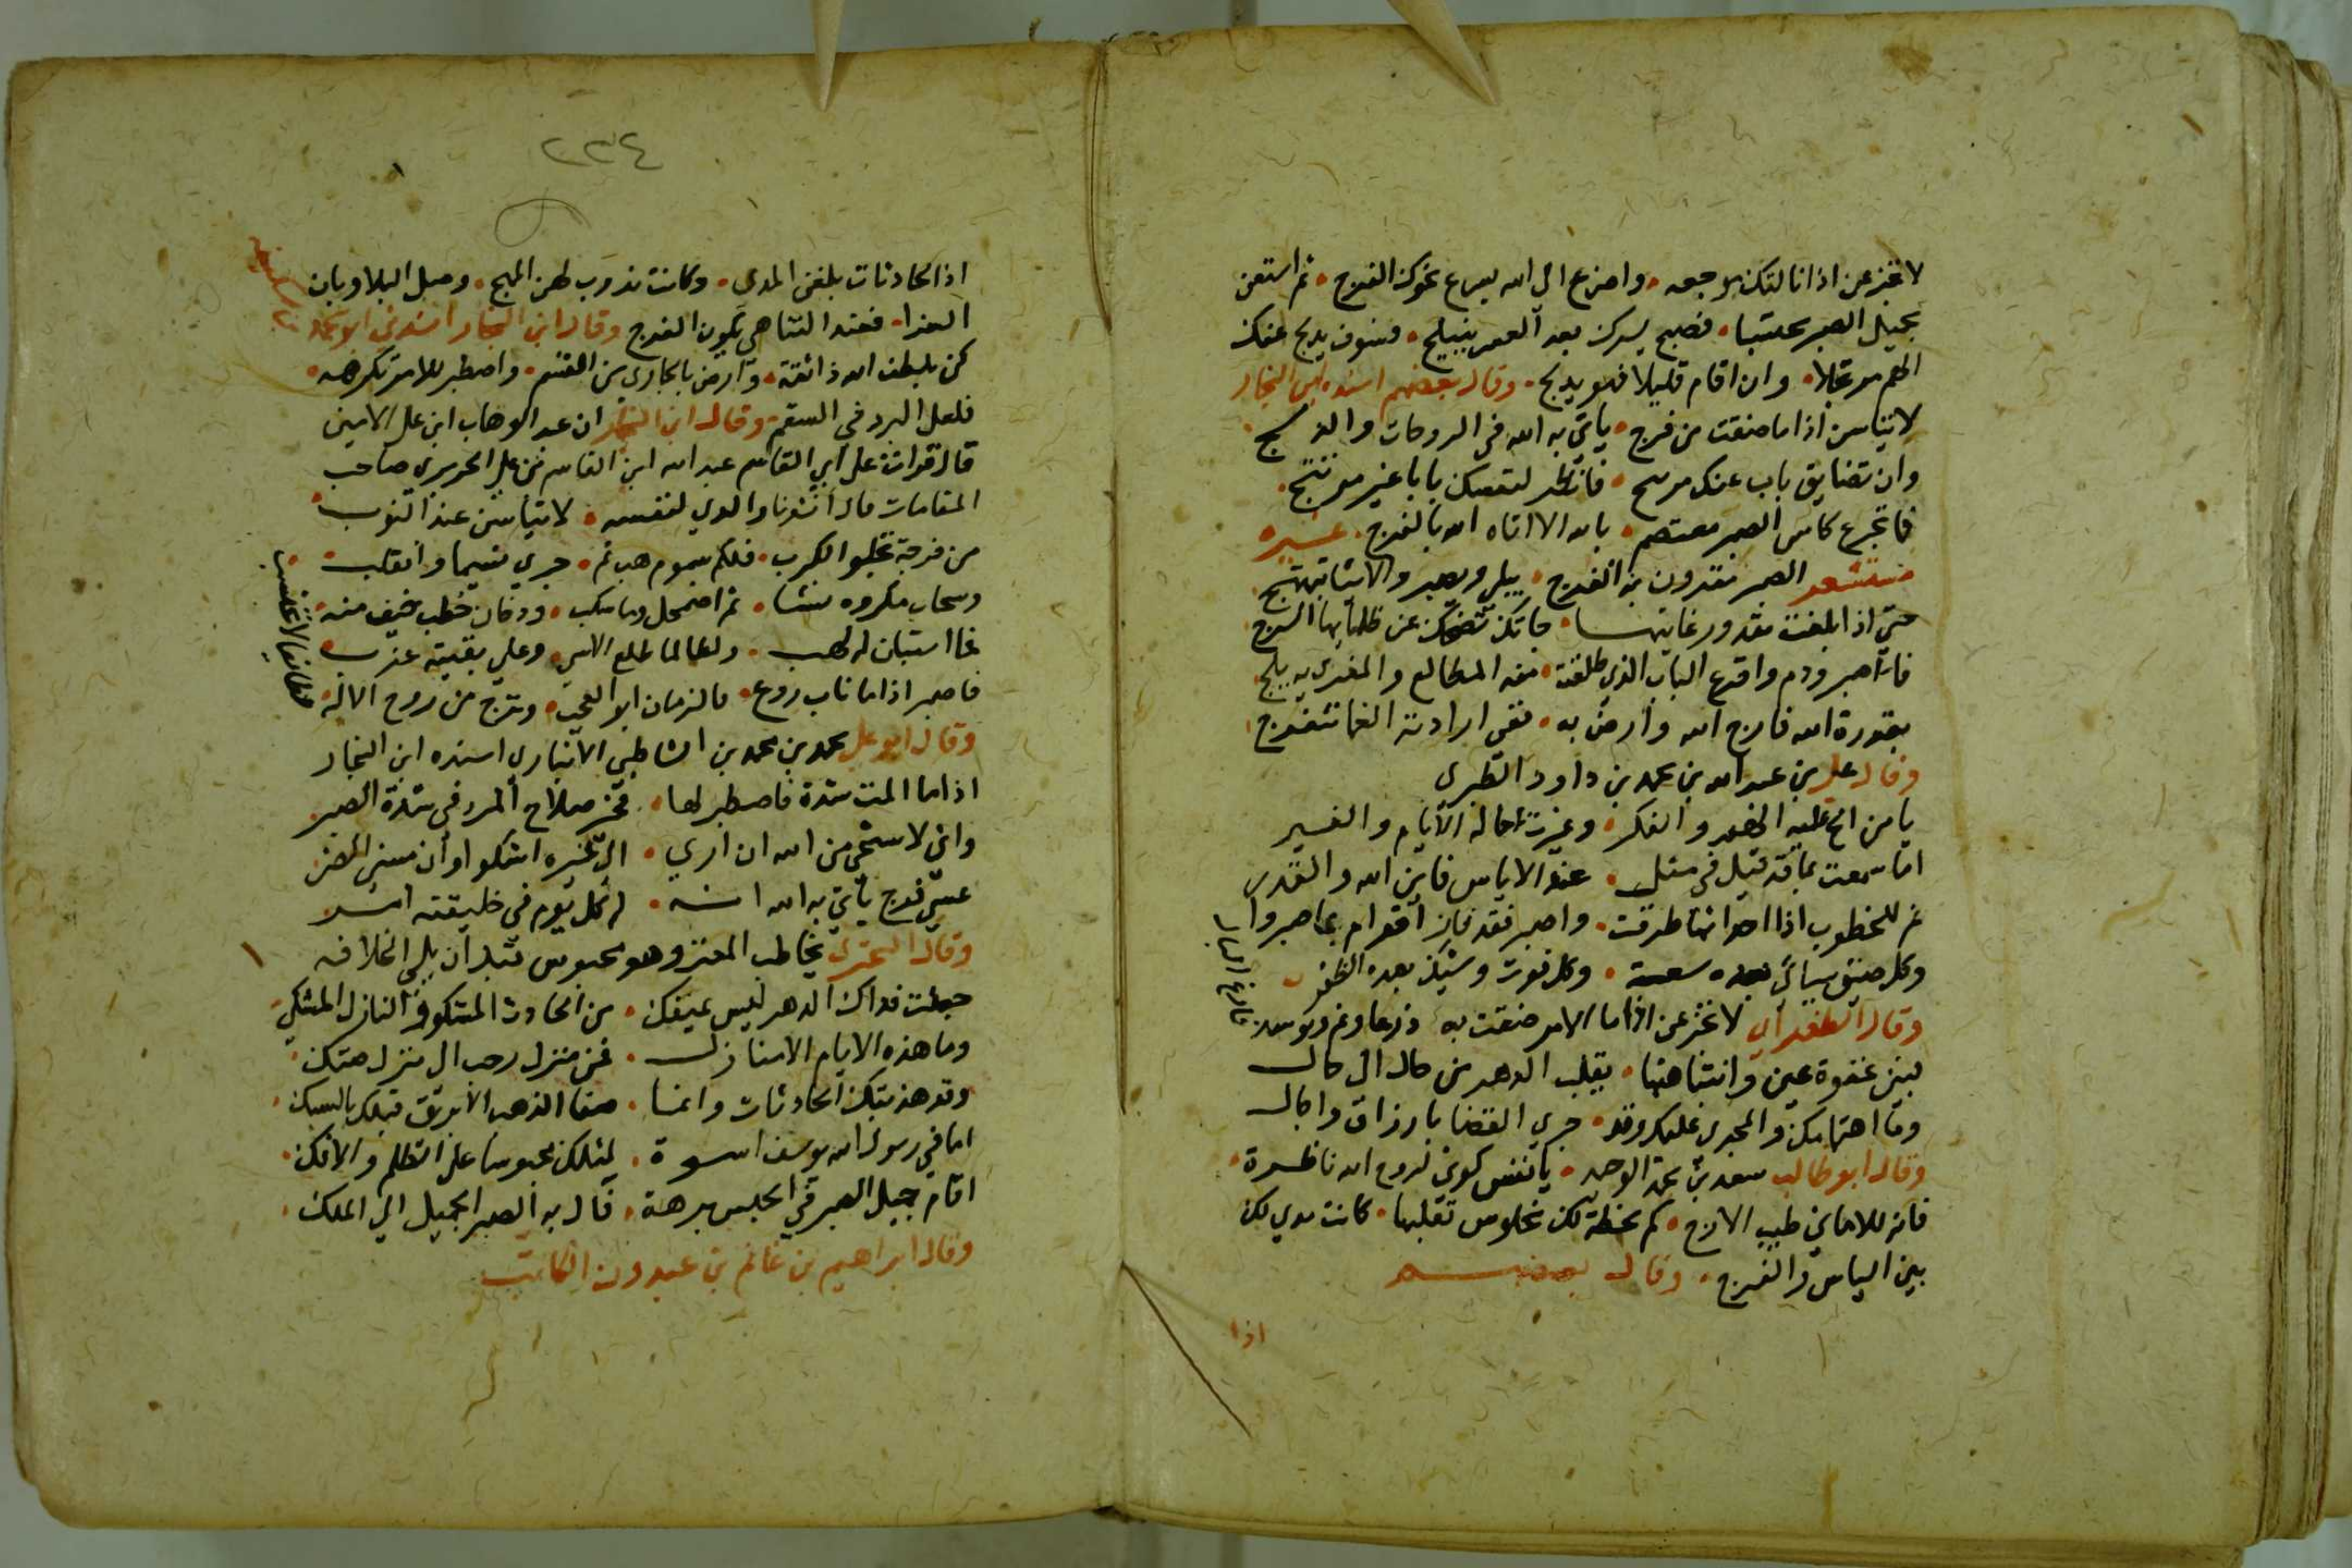 لا تجزعن اذا نالتك موجعه • واضرع الى الله يسرع نحوك الفرج • ثم استعن
بجميل الصبر محتسبا • فصبح يسرك بعد العسر ينبلج • فسوف يدلج عنك
الهم مرتحلا • وان اقام قليلا فهو يدلج • وقال بعضهم اسنده ابن النجار
لا تيأسن اذا ما ضقت من فرج • يأتي به الله في الروحات والدلج
وان تضايق باب عنك مرتتج • فانظر لنفسك بابا غير مرتتج •
فما تجرع كاس الصبر معتصم • بالله الا اتاه الله بالفرج • غيره
مستشعر الصبر مقرون به الفرج • يبلى ويصبر والاشيا تنتهج
حتى اذا بلغت مقدور غايتها • جاتك تضحك عن ظلمائها السرج
فاصبر ودم واقرع الباب الذي طلعت • منه المطالع والمغرى به يلج
بقدرة الله فارج الله وارض به • ففي ارادته الغما تنفرج
وقال علي بن عبد الله بن محمد بن داود الطبري
يا من الح عليه الهم والفكر • وغيرت حاله الايام والغير
اما سمعت بما قد قيل في مثل • عند الاياس فاين الله والقدر
نم للخطوب اذا احداثها طرقت • واصبر فقد فاز اقوام بما صبروا
وكل ضيق سيأتي بعده سعة • وكل فوت وشيك بعده الظفر
وقال الطغرائي لا تجزعن اذا ما الامر ضقت به ذرعا ونم وتوسد
فارغ البال
فبين غفوة عين وانتباهتها • يقلب الدهر من حال الى حال
وما اهتمامك والمجرى عليك وقد • جرى القضا بارزاق واجال
وقال ابو طالب سعد بن محمد الوحيد • يا نفس كوني لروح الله ناظرة •
فانه للاماني طيب الارج • كم لحظة لك مخلوس تقلبها • كانت مدى لك
بين الياس والفرج • وقال بعضهم
اذا
٢٣٤
اذا الحادثات بلغن المدى • وكانت تذوب لهن المهج • وحل البلا وبان
العزا • فعند التناهي يكون الفرج وقال ابن النجار انشدني
كن بلطف الله ذا ثقة • وارض بالجاري من القسم • واصطبر للامر تكرهه •
فلعل البرد في السقم • وقال ابن النجار ان عبد الوهاب ابن علي الامين
قال قرات على ابي القاسم عبد الله ابن القاسم بن علي الحريري صاحب
المقامات قال انشدنا والدي لنفسه • لا تيأسن عند النوب •
من فرجة تجلو الكرب • فلكم سموم هب ثم • جرى نسيما وانقلب •
وسحاب مكروه تنشا • ثم اضمحل وما سكب • ودخان خطب خيف منه •
فما استبان له لهب • ولطالما طلع الاسى • وعلى بقيته غرب •
فاصبر اذا ما ناب روع • فالزمان ابو العجب • وترج من روح الاله •
لطائفا لا تحتسب
وقال ابو علي محمد بن محمد بن الشاطبي الانباري اسنده ابن النجار
اذا ما المت شدة فاصطبر لها • فخير صلاح المرء في شدة الصبر
واني لاستحي من الله ان ارى • الى غيره اشكوا وان مسني الضر
عسى فرج يأتي به الله انه • له كل يوم في خليقته امر
وقال البحتري يخاطب المعتز وهو محبوس قبل ان يلي الخلافه
جعلت فداك الدهر ليس بمنفك • من الحادث المشكو والنازل المشكي
وما هذه الايام الا منازل • فمن منزل رحب الى منزل ضنك •
وقد هذبتك الحادثات وانما • صفا الذهب الابريز قبلك بالسبك •
اما في رسول الله يوسف اسوة • لمثلك محبوسا على الظلم والافك •
اقام جميل الصبر في الحبس برهة • فآل به الصبر الجميل الى الملك •
وقال ابراهيم بن غانم بن عبدون الكاتب